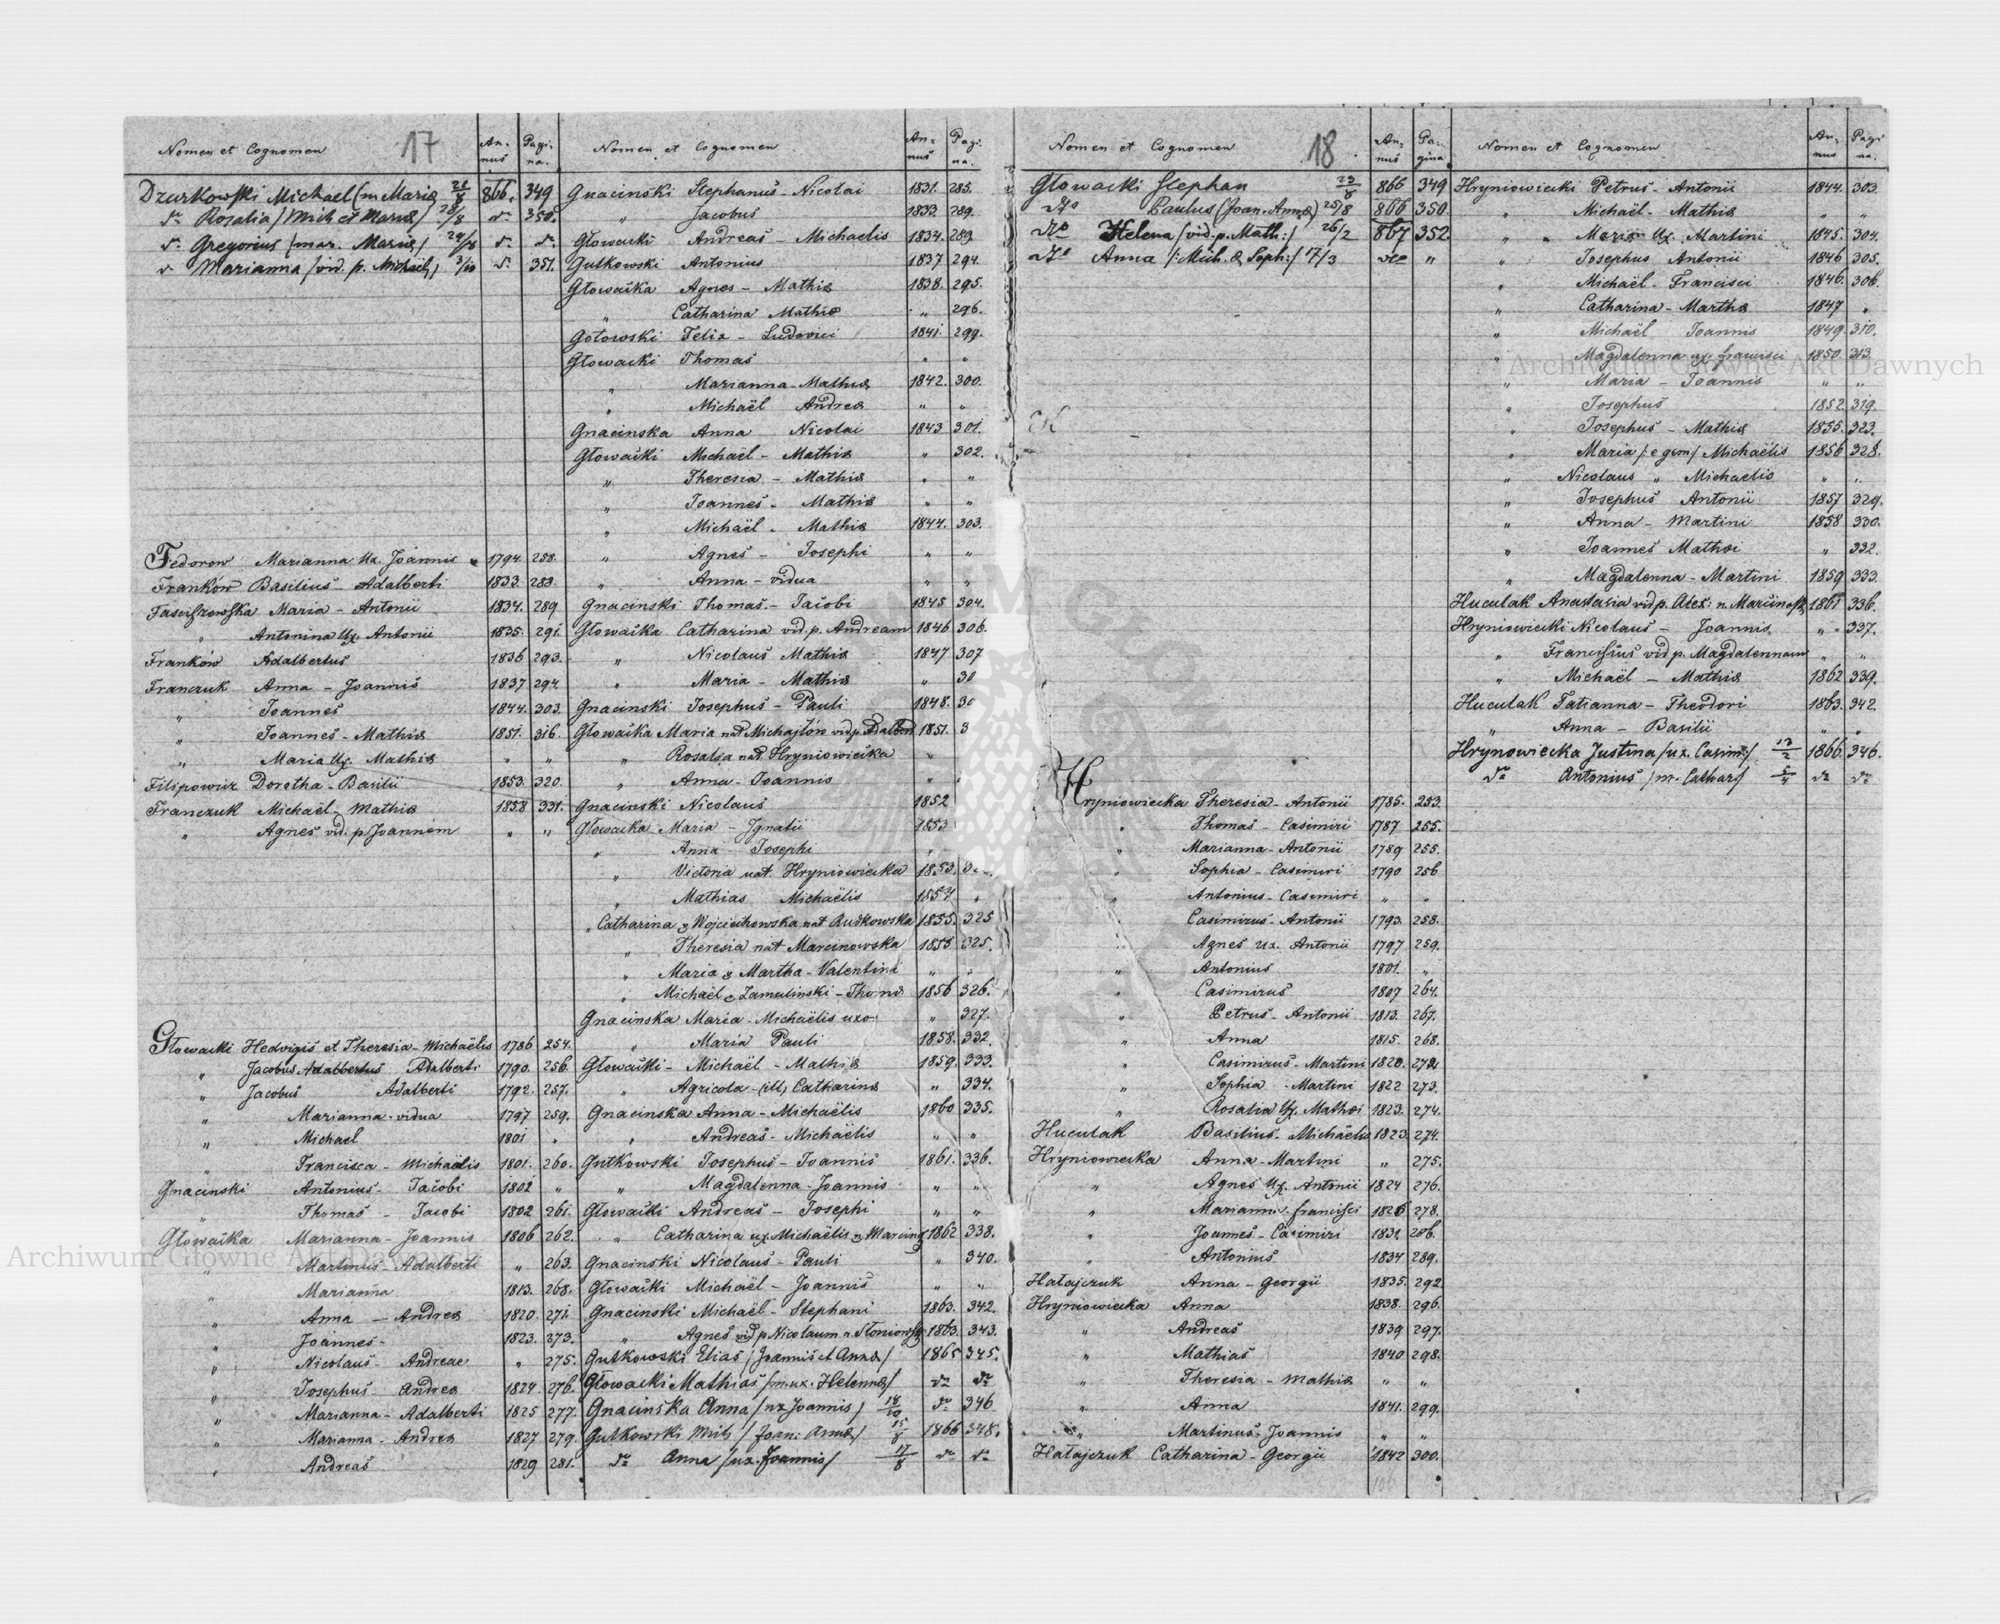 17
Nomen et Cognomen An-nus Pagi-na.
Dzurkowski Michael (m Maria 28/8 866. 349
dto Rosalia /Mich et Maria/ 28/8 dto 350.
dto Gregorius /mar. Maria/ dto dto
Marianna /vid. p. Michael/ 3/10 dto 351.
Fedorow Marianna Ux. Joannis 1794. 258.
Franków Basilius - Adalberti 1833. 283.
Fasciszewska Maria - Antonii 1834. 289
" Antonina Ux. Antonii 1835. 291.
Franków Adalbertus 1836 293.
Franczuk Anna - Joannis 1837 294.
" Joannes 1844. 303.
" Joannes - Mathiæ 1851. 316.
" Maria Ux. Mathiæ " "
Filipowicz Dorotha - Basilii 1853. 320.
Franczuk Michael - Mathiæ 1858 331.
" Agnes vid. p Joannem " "
Głowacki Hedvigis et Theresia - Michaëlis 1786 254.
" Jacobus Adalbertus Adalberti 1790. 256.
" Jacobus Adalberti 1792. 257.
" Marianna - vidua 1797 259.
" Michael 1801 "
" Francisca - Michaëlis 1801. 260.
Gnacinski Antonius - Jacobi 1802 "
" Thomas - Jacobi 1802 261.
Głowacka Marianna - Joannis 1806 262.
" Martinus - Adalberti " 263.
" Marianna 1813. 268.
" Anna - Andreæ 1820. 271.
" Joannes - 1823. 273.
" Nicolaus - Andreae " 275.
" Josephus Andreæ 1824. 276.
" Marianna - Adalberti 1825 277.
" Marianna - Andreæ 1827 279.
" Andreas 1829 281.
Nomen et Cognomen An-nus Pagi-na.
Gnacinski Stephanus - Nicolai 1831. 285.
" Jacobus 1833. 289.
Głowacki Andreas - Michaelis 1834. 289
Gutkowski Antonius 1837 294.
Głowacka Agnes - Mathiæ 1838. 295.
" Catharina Mathiæ " 296.
Gotowski Felix - Ludovici 1841. 299.
Głowacki Thomas " "
" Marianna - Mathiæ 1842. 300.
" Michaël Andreæ " "
Gnacinska Anna Nicolai 1843 301.
Głowacki Michael - Mathiæ " 302.
" Theresia - Mathiæ " "
" Joannes - Mathiæ " "
" Michaël - Mathiæ 1844. 303.
" Agnes - Josephi " "
" Anna - vidua " "
Gnacinski Thomas - Jacobi 1845 304.
Głowacka Catharina vid. p. Andream 1846 306.
" Nicolaus Mathiæ 1847 307
" Maria - Mathiæ " 30
Gnacinski Josephus - Pauli 1848. 30
Głowacka Maria nat Michajłów vid p Adalbert 1851. 3
" Rosalia nat. Hryniowiecka "
" Anna - Joannis "
Gnacinski Nicolaus 1852
Głowacka Maria - Ignatii 1853
" Anna Josephi "
" Victoria nat. Hryniowiecka 1853. 3
" Mathias Michaëlis 1854 "
" Catharina Wojciechowska nat Rutkowska 1855. 325
" Theresia nat. Marcinowska 1855 325.
" Maria & Martha - Valentini " "
" Michaël Zamulinski - Thomæ 1856 326.
Gnacinska Maria - Michaëlis uxo. " 327.
" Maria Pauli 1858. 332.
Głowacki - Michaël - Mathiæ 1859. 333.
" Agricola - (ill) Catharinæ " 334.
Gnacinska Anna - Michaëlis 1860 335.
" Andreas - Michaëlis " "
Gutkowski Josephus - Joannis 1861. 336.
" Magdalenna - Joannis " "
Głowacki Andreas - Josephi " "
" Catharina ux. Michaëlis 1862 338.
Gnacinski Nicolaus - Pauli " 340.
Głowacki Michaël - Joannis " "
Gnacinski Michaël - Stephani 1863. 342.
" Agnes vid p Nicolaum 1863. 343.
Gutkowski Elias /Joannis et Anna/ 1865 345.
Głowacki Mathias /m. ux. Helenna/ dto dto
Gnacinska Anna /ux Joannis/ 18/10 dto 346
Gutkowski Mich /Joan: Annæ/ 15/8 1866 348.
dto Anna /ux. Joannis/ 17/8 dto dto
18
Nomen et Cognomen An-nus Pa-gina
Głowacki Stephan 23/8 866 349
dto Paulus (Joan. Anna) 25/8 866 350.
dto Helena /vid. p. Math:/ 26/2 867 352.
dto Anna /:Mich. & Soph:/ 7/3 dto "
Hryniowiecka Theresia - Antonii 1785. 253.
" Thomas - Casimiri 1787 255.
" Marianna - Antonii 1789 255.
" Sophia - Casimiri 1790 256
" Antonius - Casimiri " "
" Casimirus - Antonii 1793. 258.
" Agnes ux. Antonii 1797 259.
" Antonius 1801. "
" Casimirus 1807 264.
" Petrus - Antonii 1813. 267.
" Anna 1815. 268.
" Casimirus - Martini 1820. 272
" Sophia - Martini 1822 273.
" Rosalia Ux. Mathæi 1823. 274.
Huculak Basilius - Michaelis 1823. 274.
Hryniowiecka Anna - Martini " 275.
" Agnes Ux. Antonii 1824 276.
" Marianna - Francisci 1826 278.
" Joannes - Casimiri 1831. 286.
" Antonius 1834 289.
Hałajczuk Anna - Georgii 1835. 292
Hryniowiecka Anna 1838. 296.
" Andreas 1839 297.
" Mathias 1840 298.
" Theresia - Mathiæ " "
" Anna 1841. 299.
" Martinus - Joannis " "
Hałajczuk Catharina - Georgii 1842 300.
Nomen et Cognomen An-nus Pagi na.
Hryniowiecki Petrus - Antonii 1844. 303.
" Michaël - Mathiæ " "
" Maria Ux. Martini 1845. 304.
" Josephus Antonii 1846 305.
" Michaël - Francisci 1846. 306.
" Catharina - Marthæ 1847 "
" Michaël Joannis 1849. 310.
" Magdalenna ux. Francisci 1850. 313.
" Maria - Joannis " "
" Josephus 1852 319.
" Josephus - Mathiæ 1855. 323.
" Maria /: e gem/ Michaëlis 1856 328.
" Nicolaus " Michaelis " "
" Josephus Antonii 1857 329.
" Anna - Martini 1858 330.
" Joannes Mathæi " 332.
" Magdalenna - Martini 1859 333.
Huculak Anastasia vid p. Alex: 1861 336.
Hryniowiecki Nicolaus - Joannis " 337.
" Franciscus vid p. Magdalennam " "
" Michaël - Mathiæ 1862 339.
Huculak Tatianna - Theodori 1863. 342.
" Anna - Basilii " "
Hrynowiecka Justina /ux. Casim:/ 13/2 1866. 346.
dto Antonius /m. Cathar/ 5/4 dto dto
Archiwum Główne Akt Dawnych
Archiwum Główne Akt Dawnych